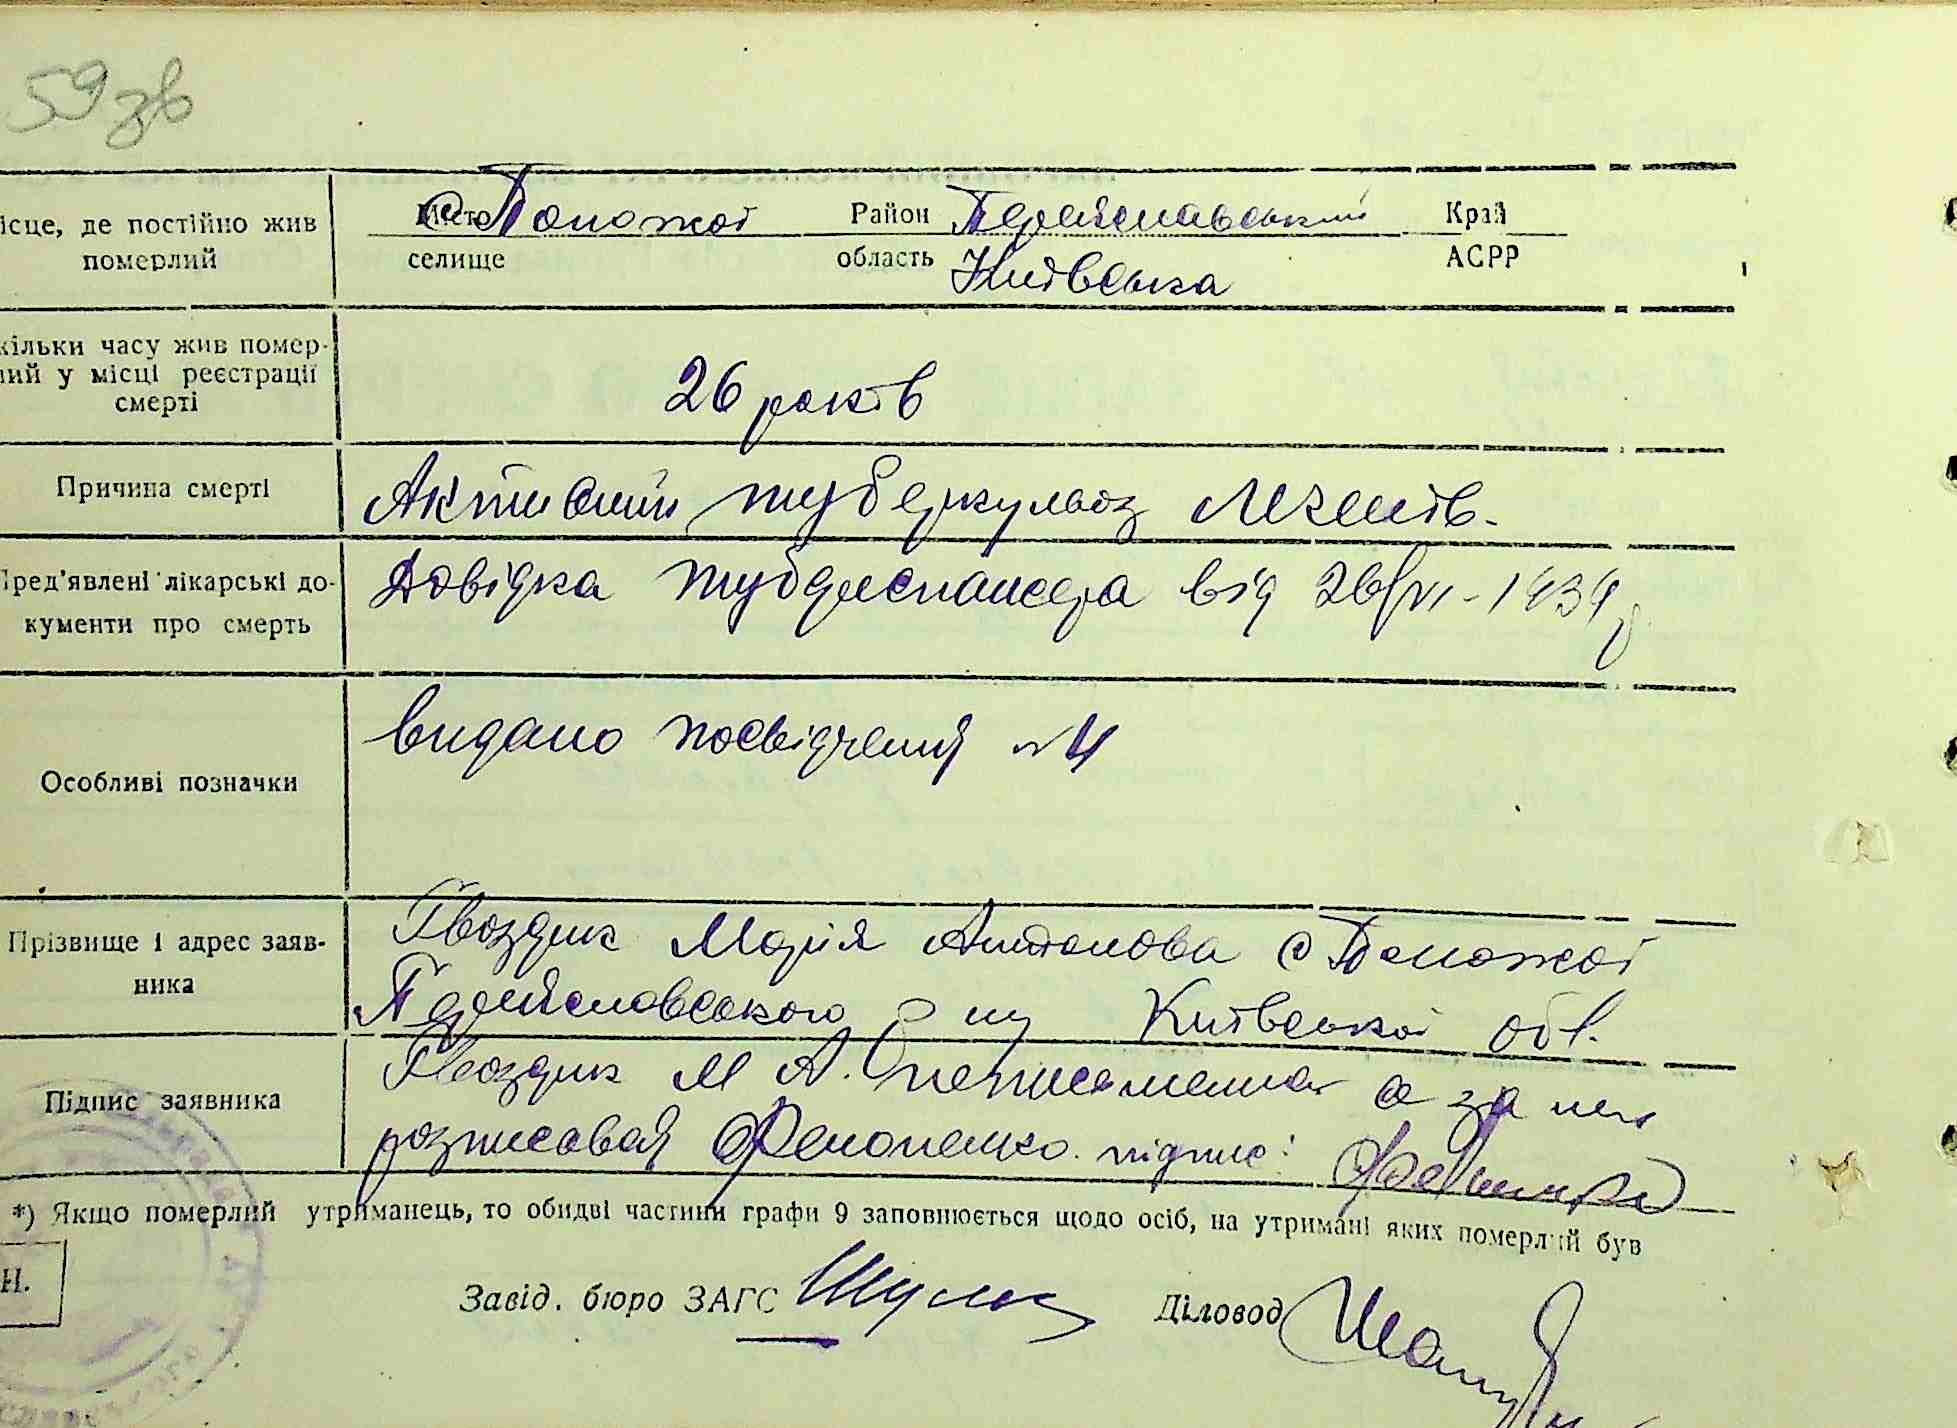 59 зв
ісце, де постійно жив померлий
Місто с Поножої Район Переяславський Край
селище область Київська АСРР
кільки часу жив помер-
лий у місці реєстрації
смерті
26 років
Причина смерті Активний туберкульоз легенів.
Пред'явлені лікарські до-
кументи про смерть
Довідка тубдиспансера від 26/VI-1939 р
Особливі позначки
видано посвідчення №4
Прізвище і адрес заяв-
ника
Гвоздик Марія Антонова с
Переяславського р ну Київської обл.
Підпис заявника
Гвоздик М А. неписьменна а за неї
розписавая підпис:
*) Якщо померлий утриманець, то обидві частини графи 9 заповнюється щодо осіб, на утримані яких померлий був
Н.
Завід. бюро ЗАГС Діловод